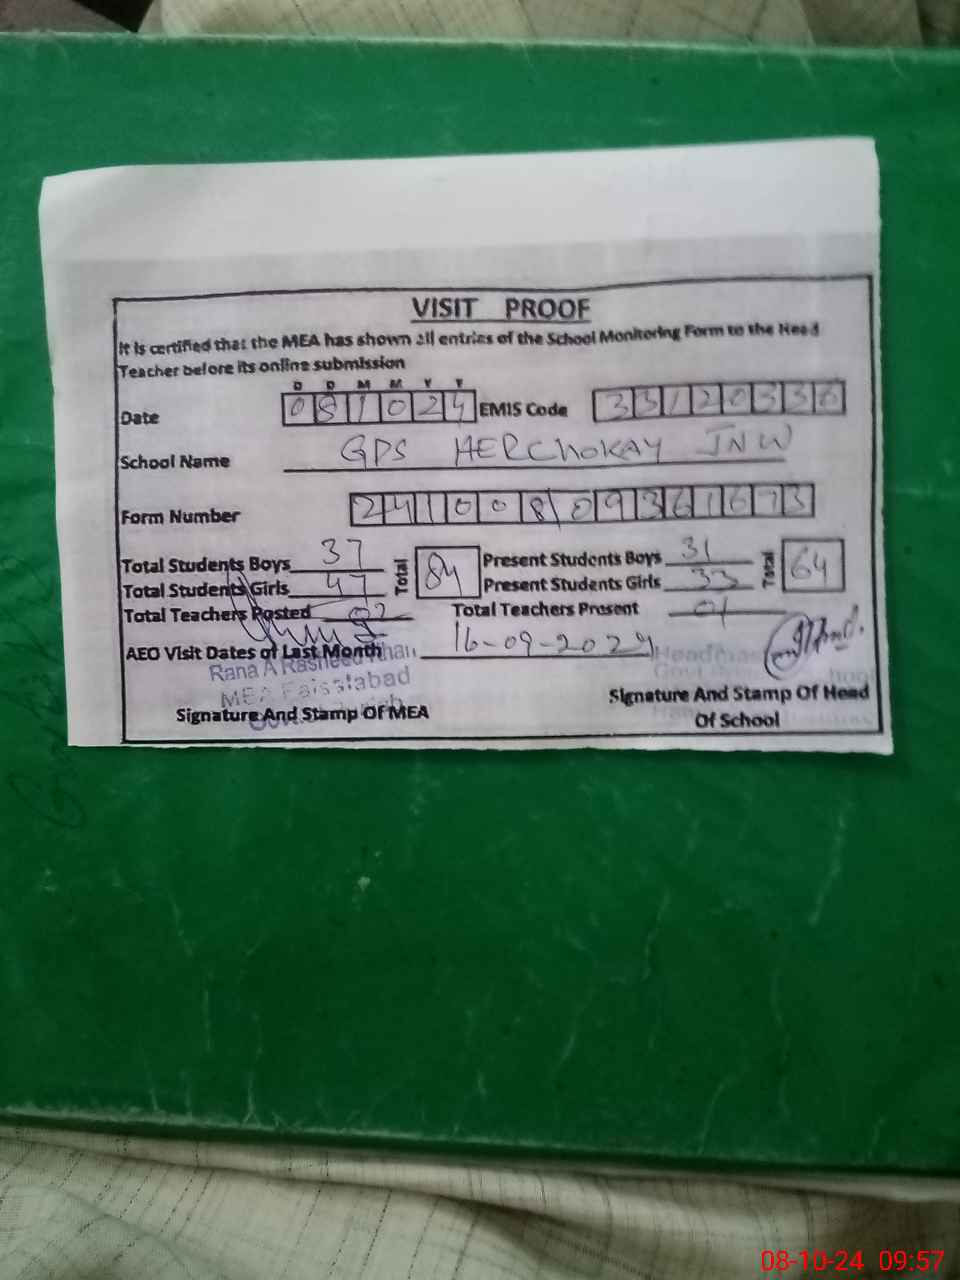 VISIT PROOF
It is certified that the MEA has shown all entries of the School Monitoring Form to the Head
Teacher before its online submission
D D M M Y Y
Date 081024 EMIS Code 33120336
School Name GPS HERCHOKAY JNW
Form Number 24100809361673
Total Students Boys 37 Total 84 Present Students Boys 31 Total 64
Total Students Girls 47 Present Students Girls 33
Total Teachers Posted 02 Total Teachers Present 01
AEO Visit Dates of Last Month 16-09-2024
Rana A Rasheed Khan
MEA Faisalabad
Signature And Stamp Of MEA
Signature And Stamp Of Head
Of School
08-10-24 09:57